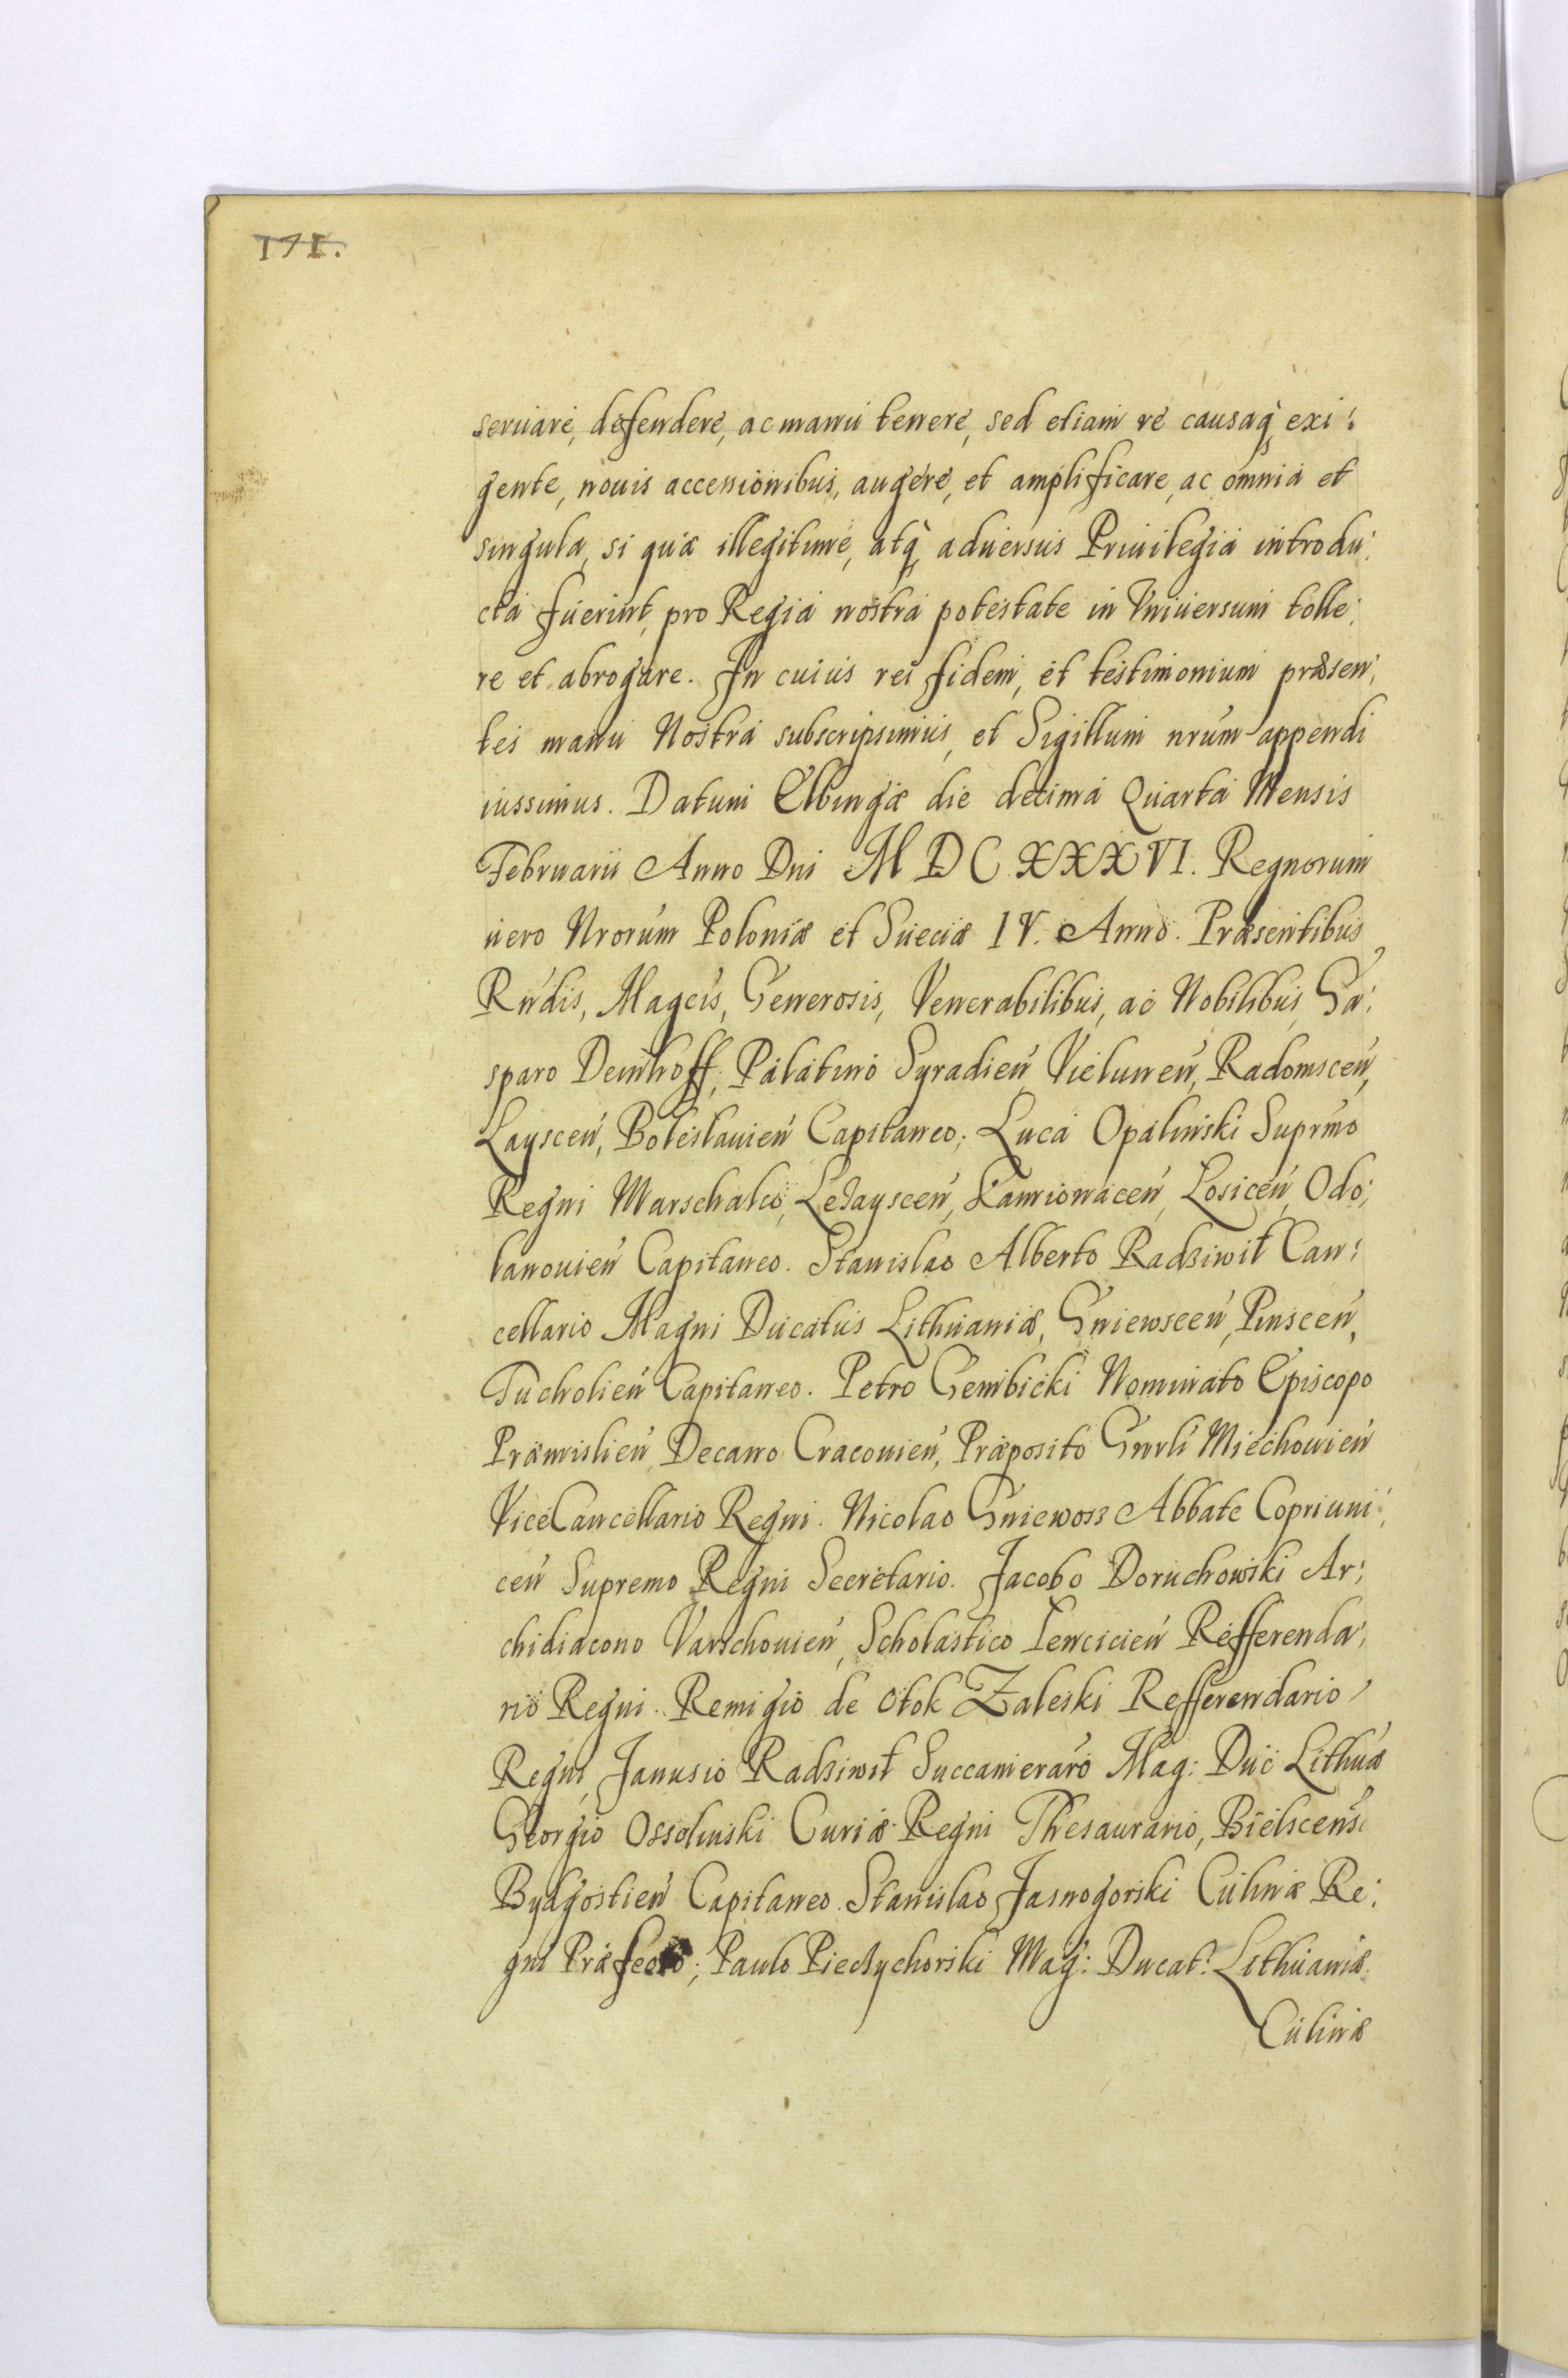 171.
seruare, defendere, ac manu tenere, sed etiam re causaq, exi:
gente, nouis accessionibus, augere, et amplificare, ac omnia et
singula, si quæ illegitime, atq, aduersus Priuilegia introdu:
cta fuerint, pro Regia nostra potestate in Vniuersum tolle:
re et abrogare. In cuius rei fidem, et testimonium præsen:
tes manu Nostra subscripsimus, et Sigillum nrum appendi
iussimus. Datum Elbingæ die decima Quarta Mensis
Februarii Anno Dni M D C XXXVI. Regnorum
uero Nrorum Poloniæ et Sueciæ IV. Anno. Præsentibus
Rndis, Magcis, Generosis, Venerabilibus, ac Nobilibus, Ga:
sparo Denhoff, Palatino Syradien, Vielunen, Radomscen,
Layscen, Boleslauien Capitaneo; Luca Opalinski Suprmo
Regni Marschalco, Leżayscen, Kamionacen, Łosicen, Odo:
lanouien Capitaneo. Stanislao Alberto Radziwił Can:
cellario Magni Ducatus Lithuaniæ, Gniewscen, Pinscen,
Tucholien Capitaneo. Petro Gembicki Nominato Episcopo
Præmislien, Decano Cracouien, Præposito Gnrli Miechouien
ViceCancellario Regni. Nicolao Gniewosz Abbate Copriuni:
cen Supremo Regni Secretario. Jacobo Doruchowski Ar:
chidiacono Varschouien, Scholastico Lencicien Refferenda:
rio Regni. Remigio de Otok Zaleski Refferendario
Regni, Janusio Radziwił Succameraro Mag: Duc Lithuæ
Georgio Ossolinski Curiæ Regni Thesaurario, Bielscens
Bydgostien Capitaneo. Stanislao Jasnogorski Culinæ Re:
gni Præfecto; Paulo Piećzychorski Mag: Ducat: Lithuaniæ
Culinæ